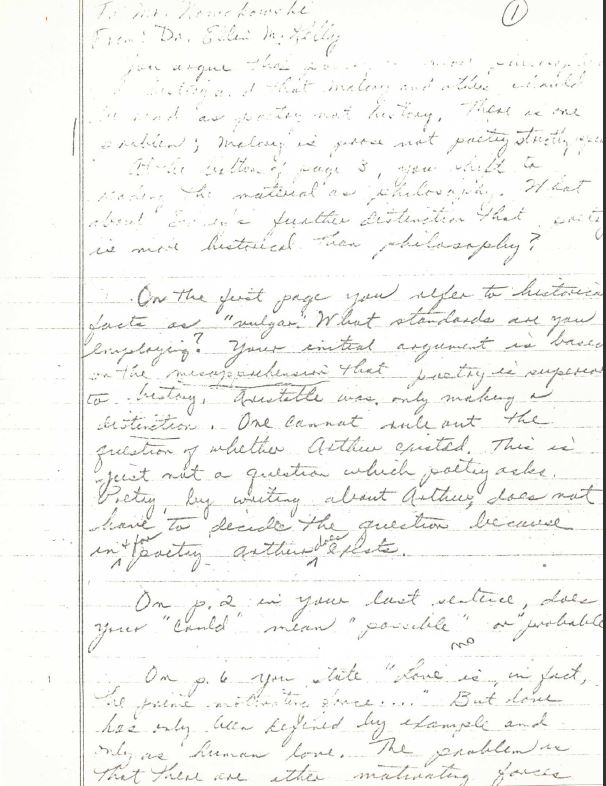 To Mr. Nowakowski
①
From: Dr. Ellen McKelly
You argue that poetry is more
history and that Malory and others should
be read as poetry not history. There is one
problem; Malory is prose not poetry strictly
At the bottom of page 3, you shift to
reading the material as philosophy. What
about further distinction that poetry
is more historical than philosophy?
On the first page you refer to historical
facts as "vulgar." What standards are you
employing? Your initial argument is based
on the misapprehension that poetry is superior
to history. Aristotle was only making a
distinction. One cannot rule out the
question of whether Arthur existed. This is
just not a question which poetry asks.
Poetry, by writing about Arthur, does not
have to decide the question because
in + for poetry Arthur does exists.
On p. 2 in your last sentence, does
your "could" mean "possible" or "probable
no
On p. 6 you state "Love is, in fact,
the prime motivating force...." But love
has only been defined by example and
only as human love. The problem is
that there are other motivating forces